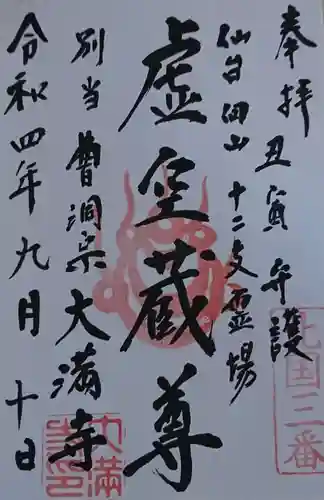 奉拝 丑寅 守護
北国三番
仙台 十二支霊場
虚空蔵尊
別当 曹洞宗 大満寺
令和四年九月十日